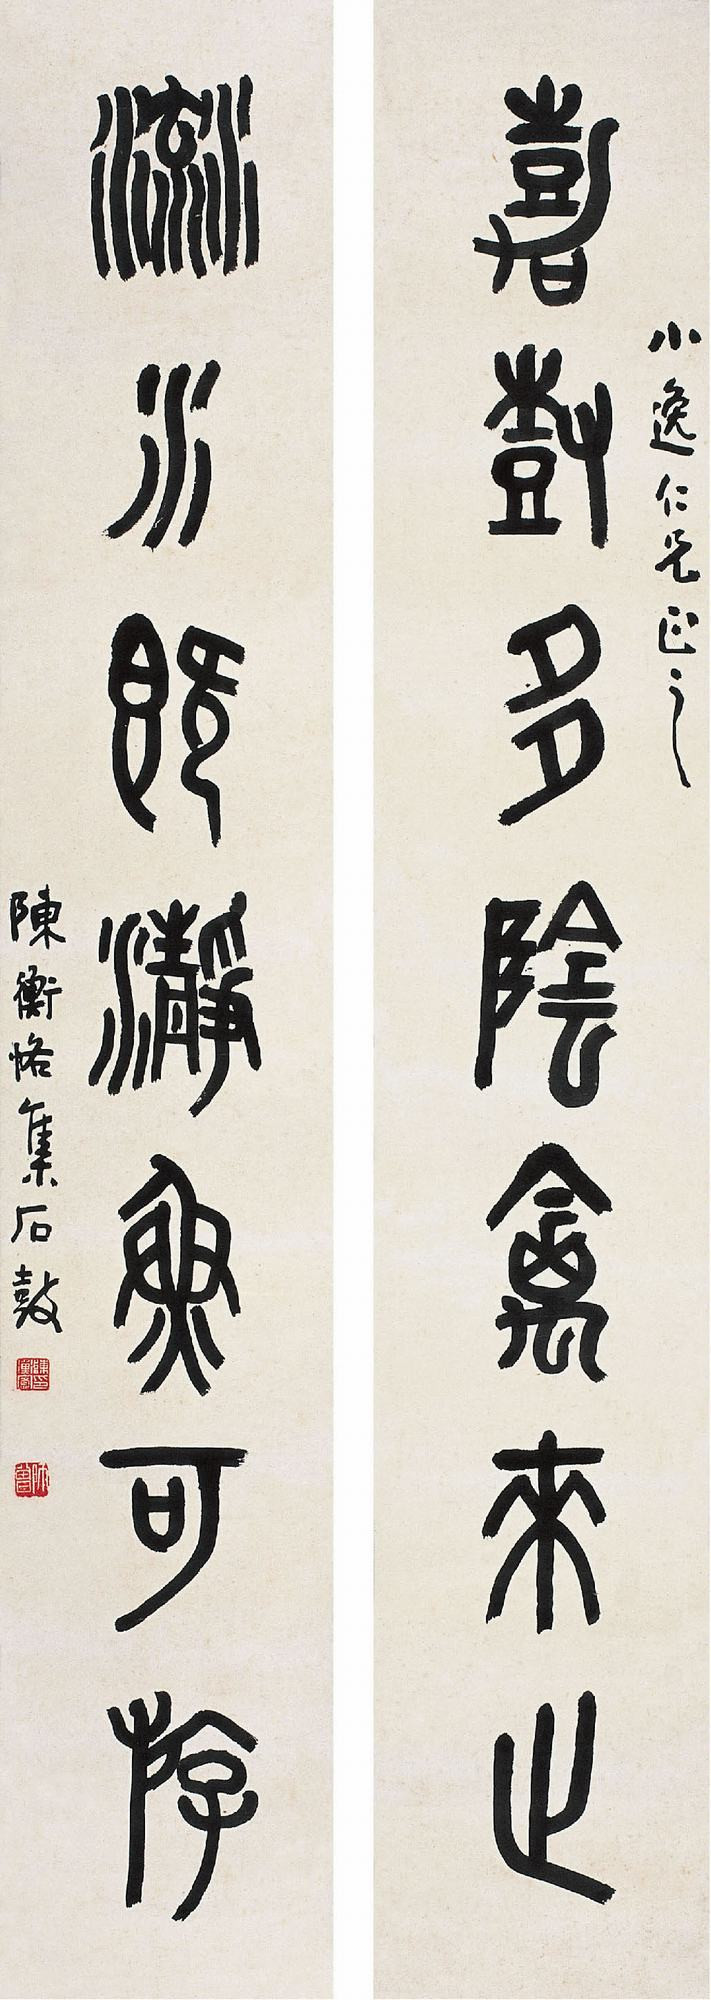 小逸仁兄正之
嘉樹多陰禽來止
流水既瀞魚可游
陳衡恪集石鼓